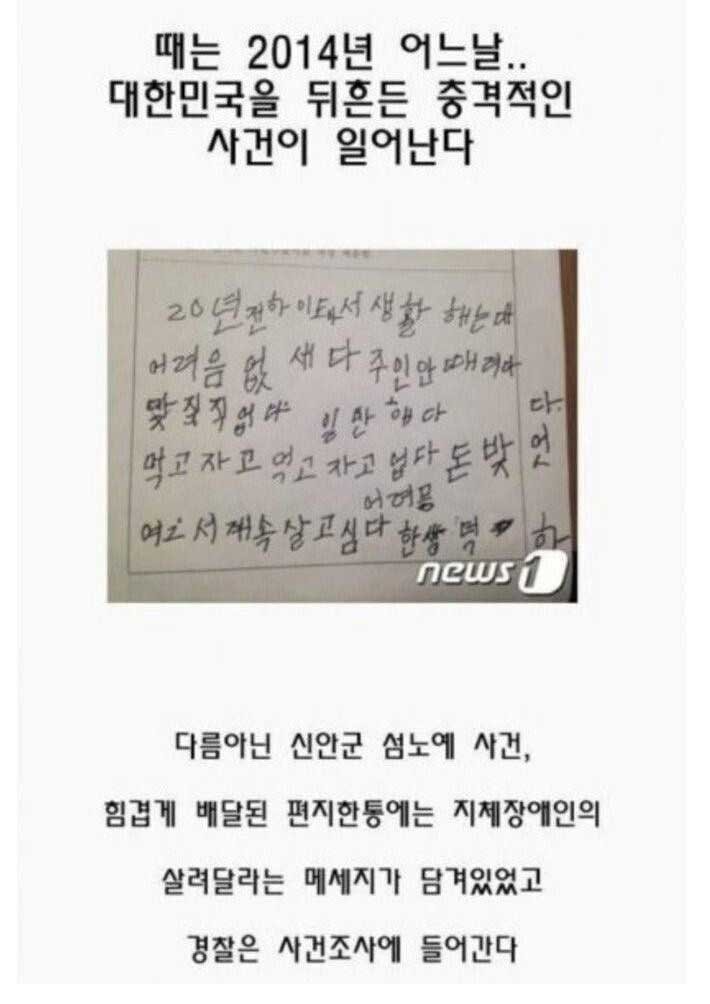 때는 2014년 어느날..
대한민국을 뒤흔든 충격적인
사건이 일어난다
20년전하 이도서 생활 해는대
어려음 없 새다 주인안때려다
맞질직업다 임만해다 다.
먹고 자고 먹고 자고 업다 돈 밪 엇
어려움
여로서 계속살고심다 한쌍 떡 하
news1
다름아닌 신안군 섬노예 사건,
힘겹게 배달된 편지한통에는 지체장애인의
살려달라는 메세지가 담겨있었고
경찰은 사건조사에 들어간다